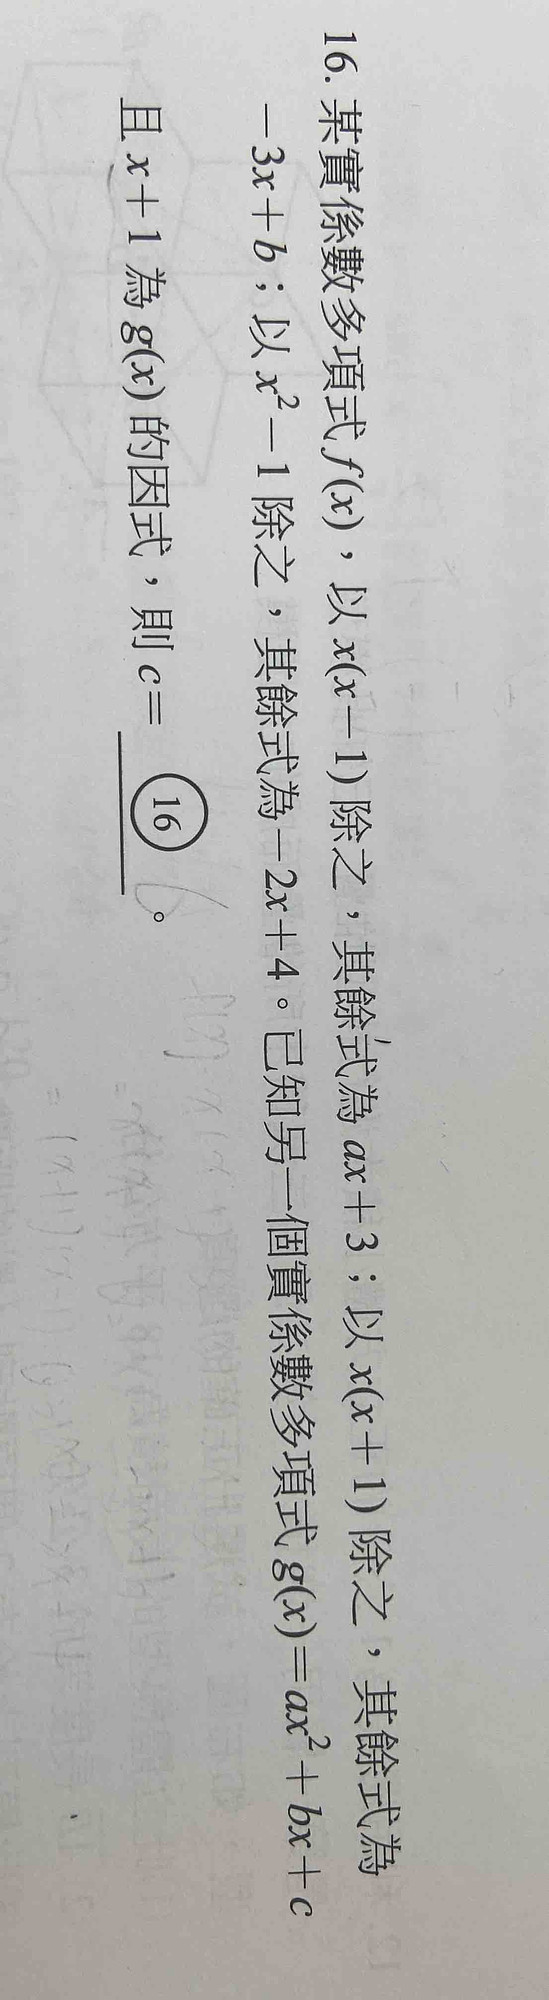 16. 某實係數多項式 f(x)，以 x(x－1) 除之，其餘式為 ax＋3；以 x(x＋1) 除之，其餘式為
－3x＋b；以 x²－1 除之，其餘式為－2x＋4。已知另一個實係數多項式 g(x)＝ax²＋bx＋c
且 x＋1 為 g(x) 的因式，則 c＝ ⑯ 。